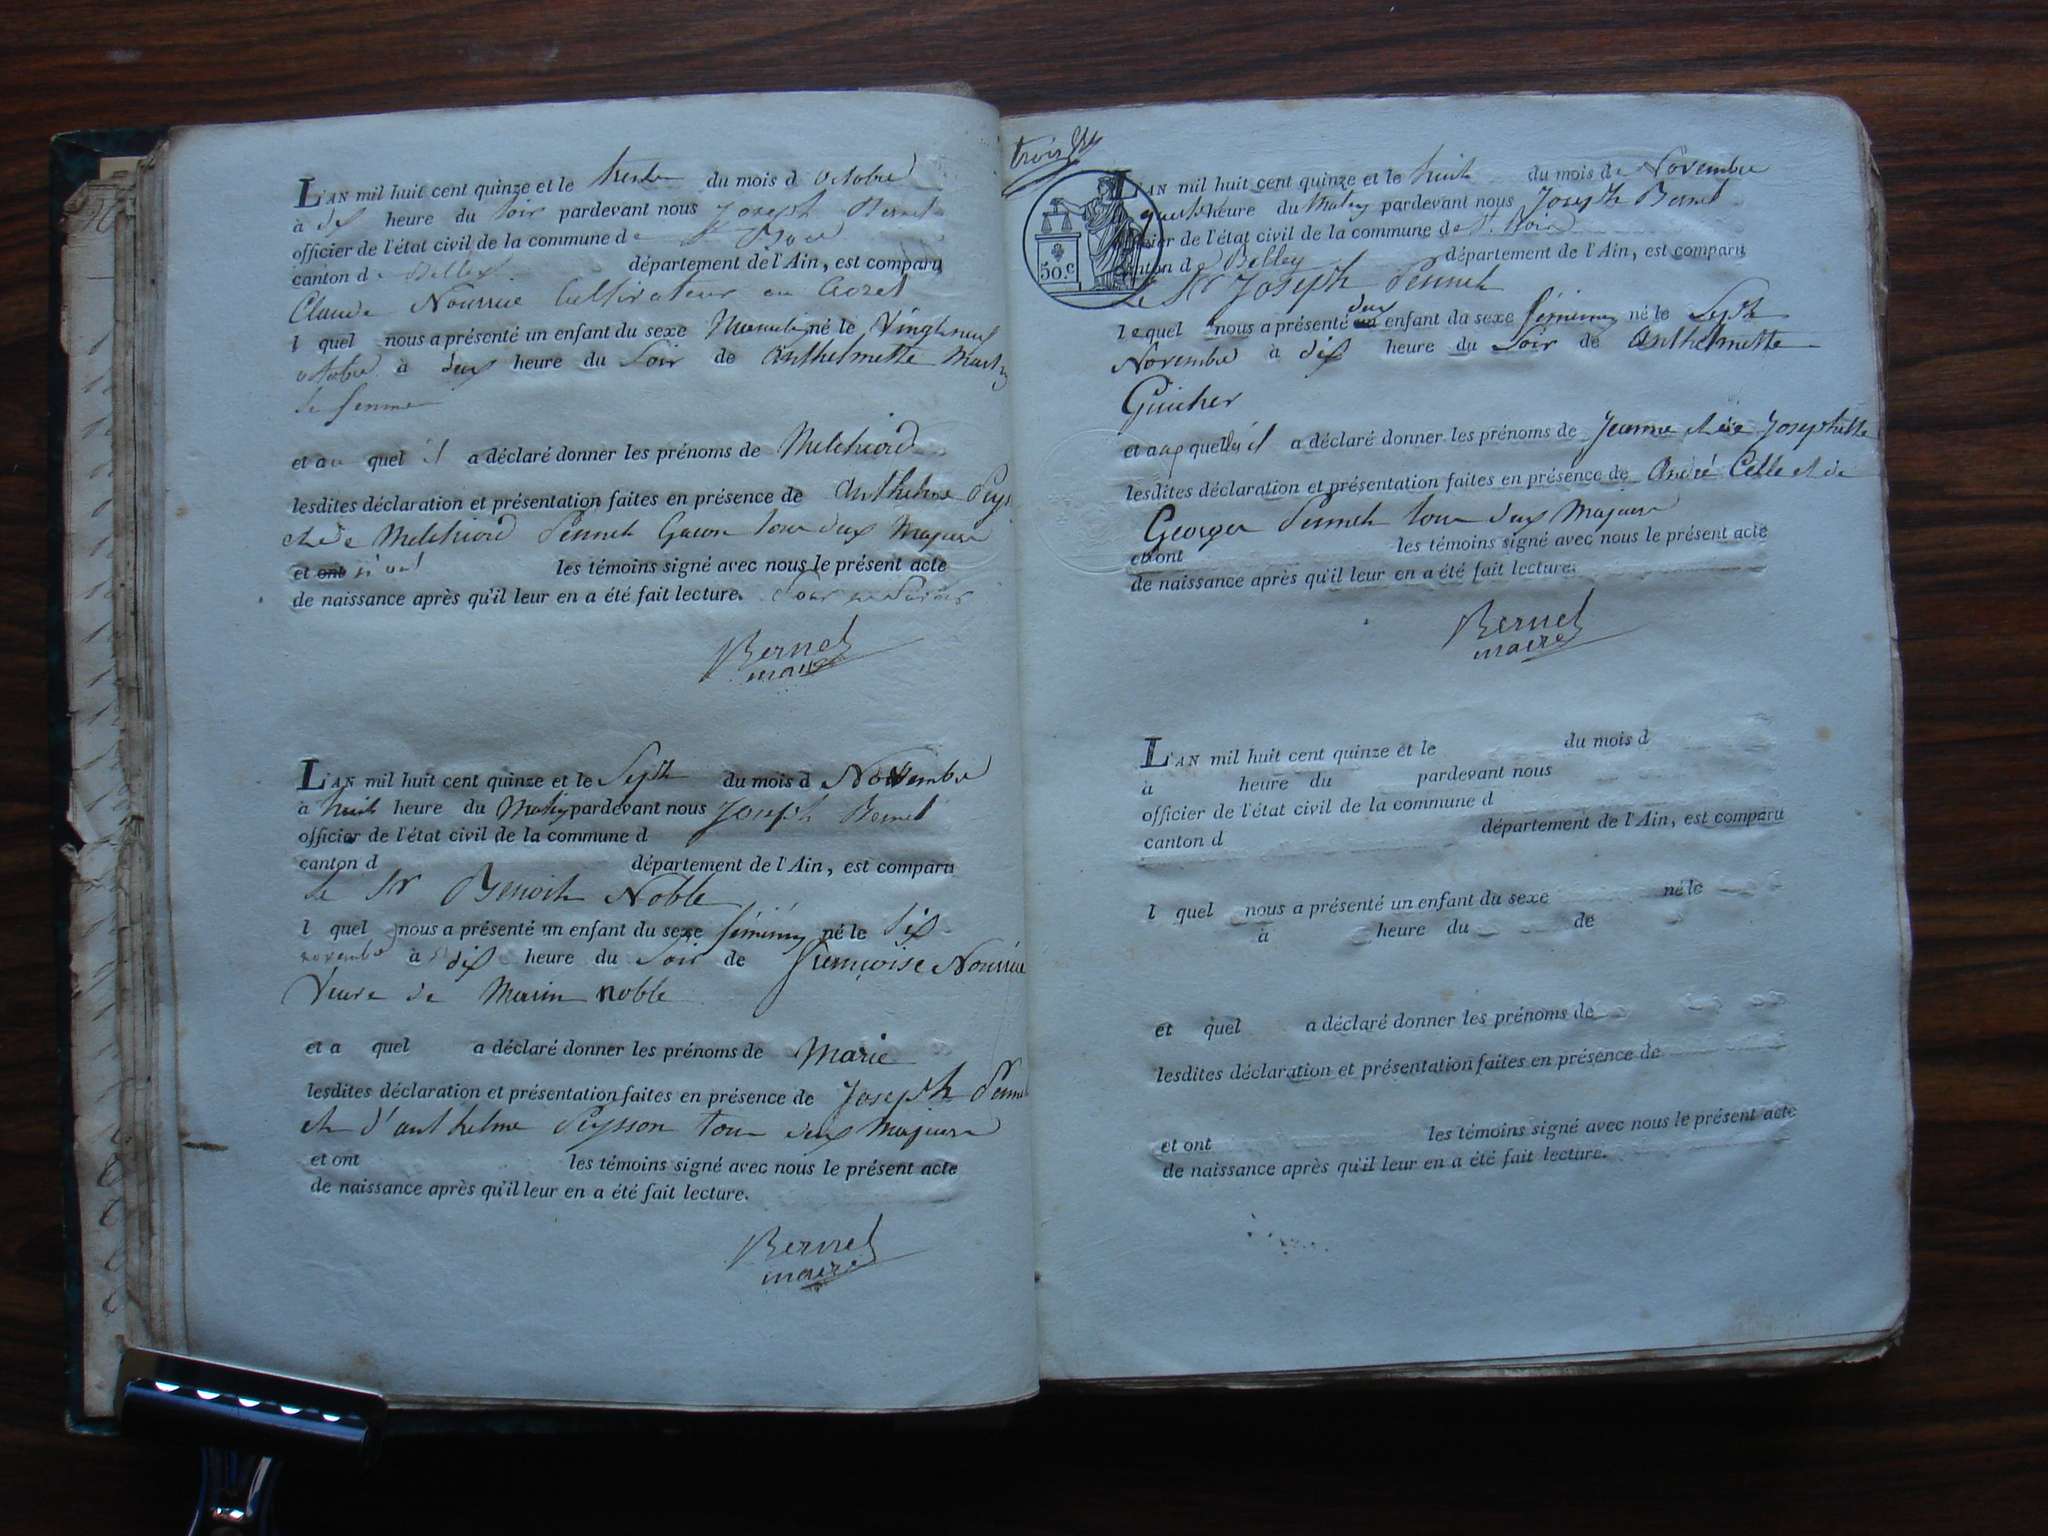 L'AN mil huit cent quinze et le trente du mois d octobre
à dix heure du soir pardevant nous Joseph Bernel
officier de l'état civil de la commune de
canton de Belley département de l'Ain, est comparu
Claude Nourrice Cultivateur au
l quel nous a présenté un enfant du sexe Masculin né le Vingt neuf
octobre à deux heure du Soir de Anthelmette
Sa femme
et au quel il a déclaré donner les prénoms de Melchiord
lesdites déclaration et présentation faites en présence de Anthelme
et de Melchiord Pernet tous deux Majeurs
et ont les témoins signé avec nous le présent acte
de naissance après qu'il leur en a été fait lecture.
Bernel
maire
L'AN mil huit cent quinze et le Sept du mois d Novembre
à huit heure du Matin pardevant nous Joseph Bernel
officier de l'état civil de la commune d
canton d département de l'Ain, est comparu
le Sr Benoit Noble
l quel nous a présenté un enfant du sexe féminin né le Six
novembre à dix heure du Soir de Françoise Nourrice
Veuve de Marin Noble
et a quel a déclaré donner les prénoms de Marie
lesdites déclaration et présentation faites en présence de Joseph
et d'anthelme Peysson tous deux Majeurs
et ont les témoins signé avec nous le présent acte
de naissance après qu'il leur en a été fait lecture.
Bernel
maire
trois
50.c
L'AN mil huit cent quinze et le huit du mois de Novembre
heure du Matin pardevant nous Joseph Bernel
officier de l'état civil de la commune de
canton de Belley département de l'Ain, est comparu
Le Sr Joseph Pernet
deux
lequel nous a présenté un enfant du sexe féminin né le Sept
Novembre à dix heure du Soir de Anthelmette
Guicher
et aux quelles il a déclaré donner les prénoms de Jeanne et de Josephette
lesdites déclaration et présentation faites en présence de André Celle et de
George Pernet tous deux Majeurs
et ont les témoins signé avec nous le présent acte
de naissance après qu'il leur en a été fait lecture.
Bernel
maire
L'AN mil huit cent quinze et le du mois d
à heure du pardevant nous
officier de l'état civil de la commune d
canton d département de l'Ain, est comparu
l quel nous a présenté un enfant du sexe né le
à heure du de
et quel a déclaré donner les prénoms de
lesdites déclaration et présentation faites en présence de
et ont les témoins signé avec nous le présent acte
de naissance après qu'il leur en a été fait lecture.